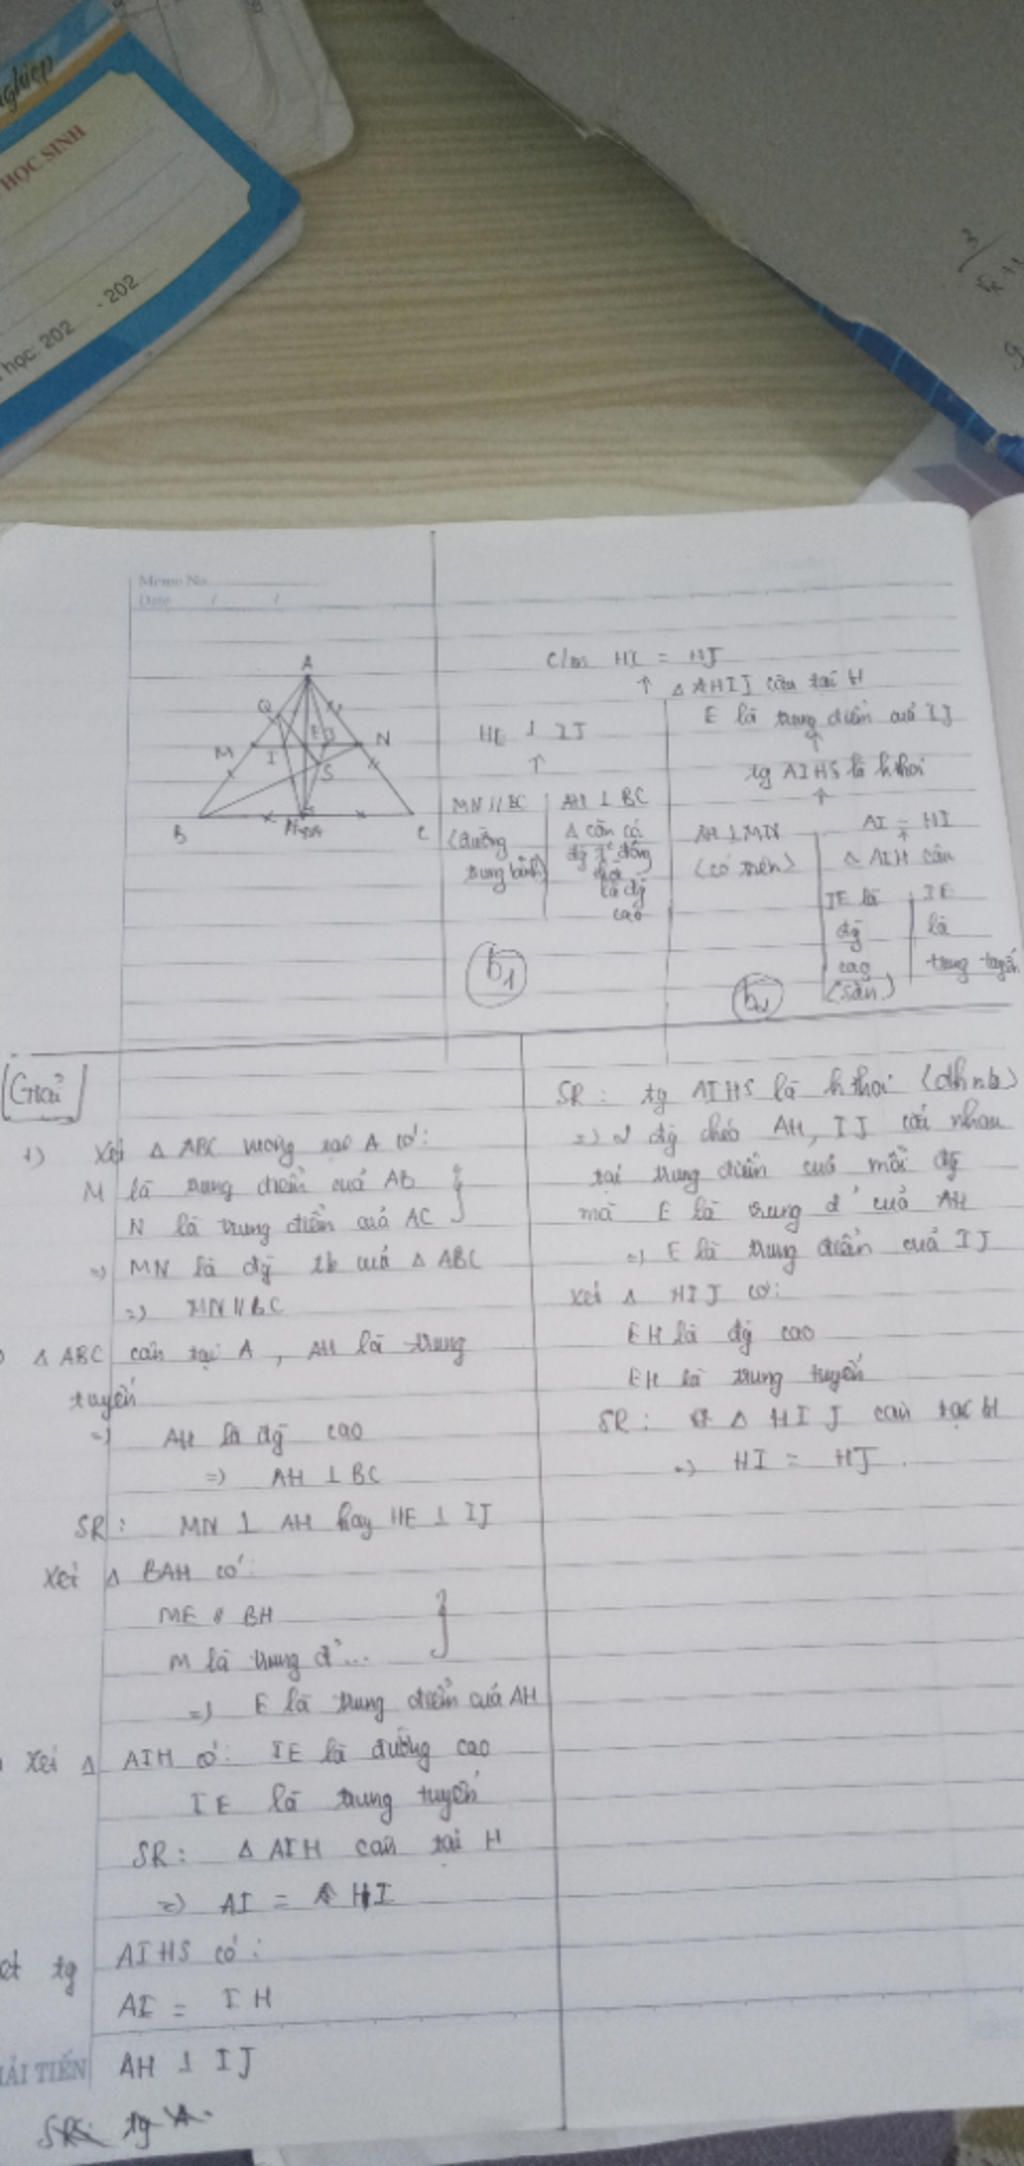 nghiệp
HỌC SINH
học: 202 - 202
Memo No.
Date / /
A
Q
M I E J N
S
B H C
C/m HI = HJ
↑ △ HIJ cân tại H
HE ⊥ IJ
↑
MN // BC
(đường
trung bình)
AH ⊥ BC
△ cân có
đg
là đg
cao
b1
E là trung điểm của IJ
↑
tg AIHS là h thoi
↑
AH ⊥ MN
(có trên)
AI = HI
↑
△ AIH cân
IE là
đg
cao
IE
là
trung tuyến
Giải
1) Xét △ ABC vuông tại A có:
M là trung điểm của AB
N là trung điểm của AC
=> MN là đg tb của △ ABC
=> MN // BC
△ ABC cân tại A, AH là trung
tuyến
=> AH là đg cao
=> AH ⊥ BC
SR: MN ⊥ AH hay HE ⊥ IJ
Xét △ BAH có:
ME // BH
M là trung đ'...
=> E là trung điểm của AH
Xét △ AIH có: IE là đường cao
IE là trung tuyến
SR: △ AIH cân tại H
=> AI = HI
tg AIHS có:
AI = IH
ẢI TIẾN
AH ⊥ IJ
SR: tg AIHS là h thoi (dhnb)
=> 2 đg chéo AH, IJ cắt nhau
tại trung điểm của mỗi đg
mà E là trung đ' của AH
=> E là trung điểm của IJ
Xét △ HIJ có:
EH là đg cao
EH là trung tuyến
SR: △ HIJ cân tại H
=> HI = HJ.